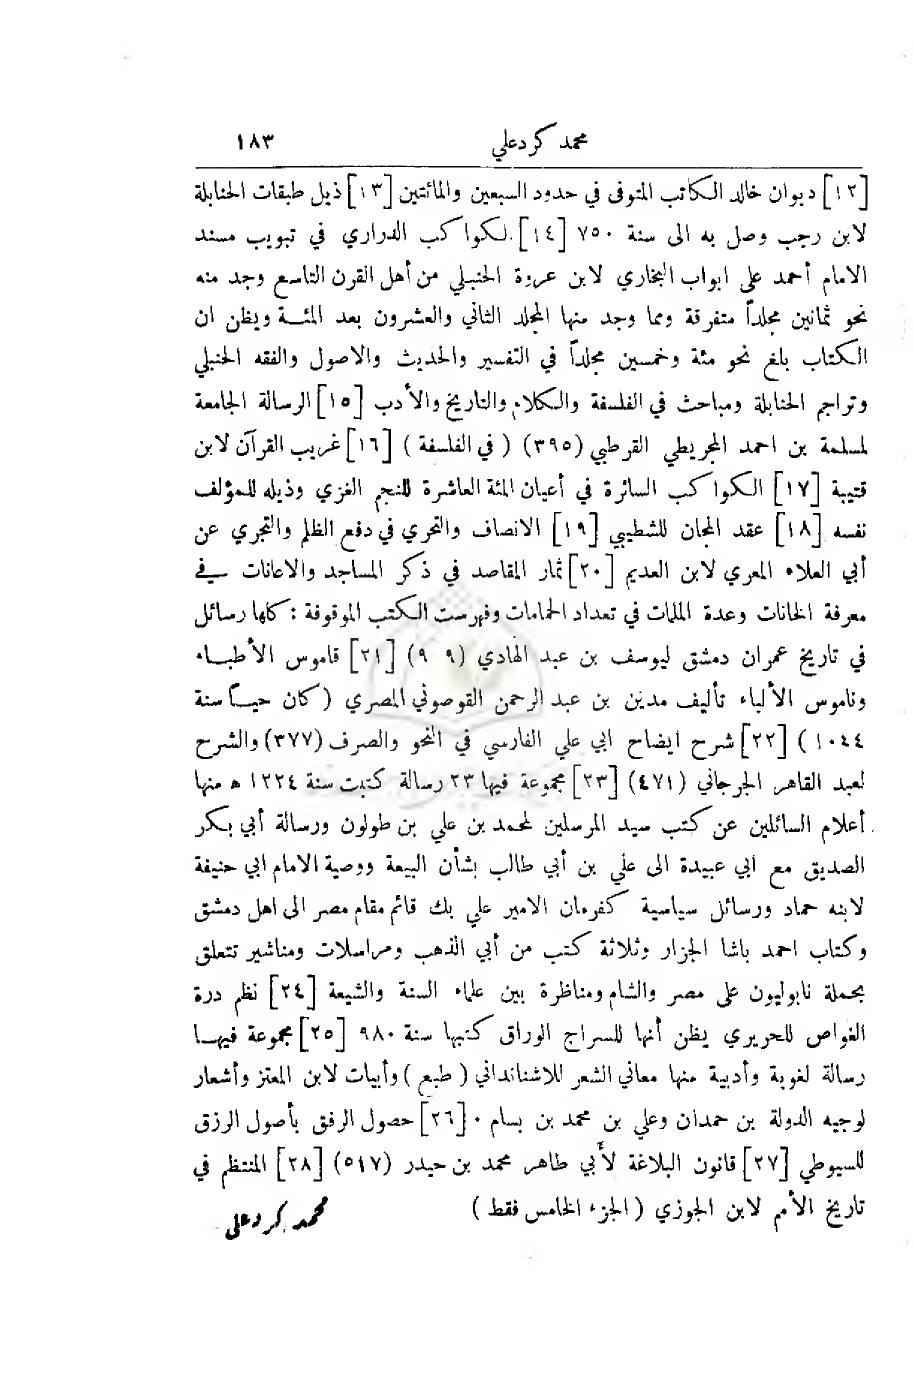 محمد كردعلي ١٨٣
[١٢] ديوان خالد الكاتب المتوفى في حدود السبعين والمائتين [١٣] ذيل طبقات الحنابلة
لابن رجب وصل به الى سنة ٧٥٠ [١٤] لكواكب الدراري في تبويب مسند
الامام أحمد على ابواب البخاري لابن عروة الحنبلي من أهل القرن التاسع وجد منه
نحو ثمانين مجلداً متفرقة ومما وجد منها المجلد الثاني والعشرون بعد المئة ويظن ان
الكتاب بلغ نحو مئة وخمسين مجلداً في التفسير والحديث والاصول والفقه الحنبلي
وتراجم الحنابلة ومباحث في الفلسفة والكلام والتاريخ والأدب [١٥] الرسالة الجامعة
لمسلمة بن احمد المجريطي القرطبي (٣٩٥) ( في الفلسفة ) [١٦] غريب القرآن لابن
قتيبة [١٧] الكواكب السائرة في أعيان المئة العاشرة للنجم الغزي وذيله للمؤلف
نفسه [١٨] عقد الجمان للشطيبي [١٩] الانصاف والتحري في دفع الظلم والتجري عن
أبي العلاء المعري لابن العديم [٢٠] ثمار المقاصد في ذكر المساجد والاعانات في
معرفة الخانات وعدة الملمات في تعداد الحمامات وفهرست الكتب الموقوفة : كلها رسائل
في تاريخ عمران دمشق ليوسف بن عبد الهادي (٩ ٩) [٢١] قاموس الأطباء
وناموس الألباء تأليف مدين بن عبد الرحمن القوصوني المصري ( كان حياً سنة
١٠٤٤ ) [٢٢] شرح ايضاح ابي علي الفارسي في النحو والصرف (٣٧٧) والشرح
لعبد القاهر الجرجاني (٤٧١) [٢٣] مجموعة فيها ٢٣ رسالة كتبت سنة ١٢٢٤ ه منها
أعلام السائلين عن كتب سيد المرسلين لمحمد بن علي بن طولون ورسالة أبي بكر
الصديق مع ابي عبيدة الى علي بن أبي طالب بشأن البيعة ووصية الامام ابي حنيفة
لابنه حماد ورسائل سياسية كفرمان الامير علي بك قائم مقام مصر الى اهل دمشق
وكتاب احمد باشا الجزار وثلاثة كتب من أبي الذهب ومراسلات ومناشير تتعلق
بحملة نابوليون على مصر والشام ومناظرة بين علماء السنة والشيعة [٢٤] نظم درة
الغواص للحريري يظن أنها للسراج الوراق كتبها سنة ٩٨٠ [٢٥] مجموعة فيها
رسالة لغوية وأدبية منها معاني الشعر للاشنانداني ( طبع ) وأبيات لابن المعتز وأشعار
لوجيه الدولة بن حمدان وعلي بن محمد بن بسام ٠ [٢٦] حصول الرفق بأصول الرزق
للسيوطي [٢٧] قانون البلاغة لأبي طاهر محمد بن حيدر (٥١٧) [٢٨] المنتظم في
تاريخ الأمم لابن الجوزي ( الجزء الخامس فقط )
محمد كردعلي